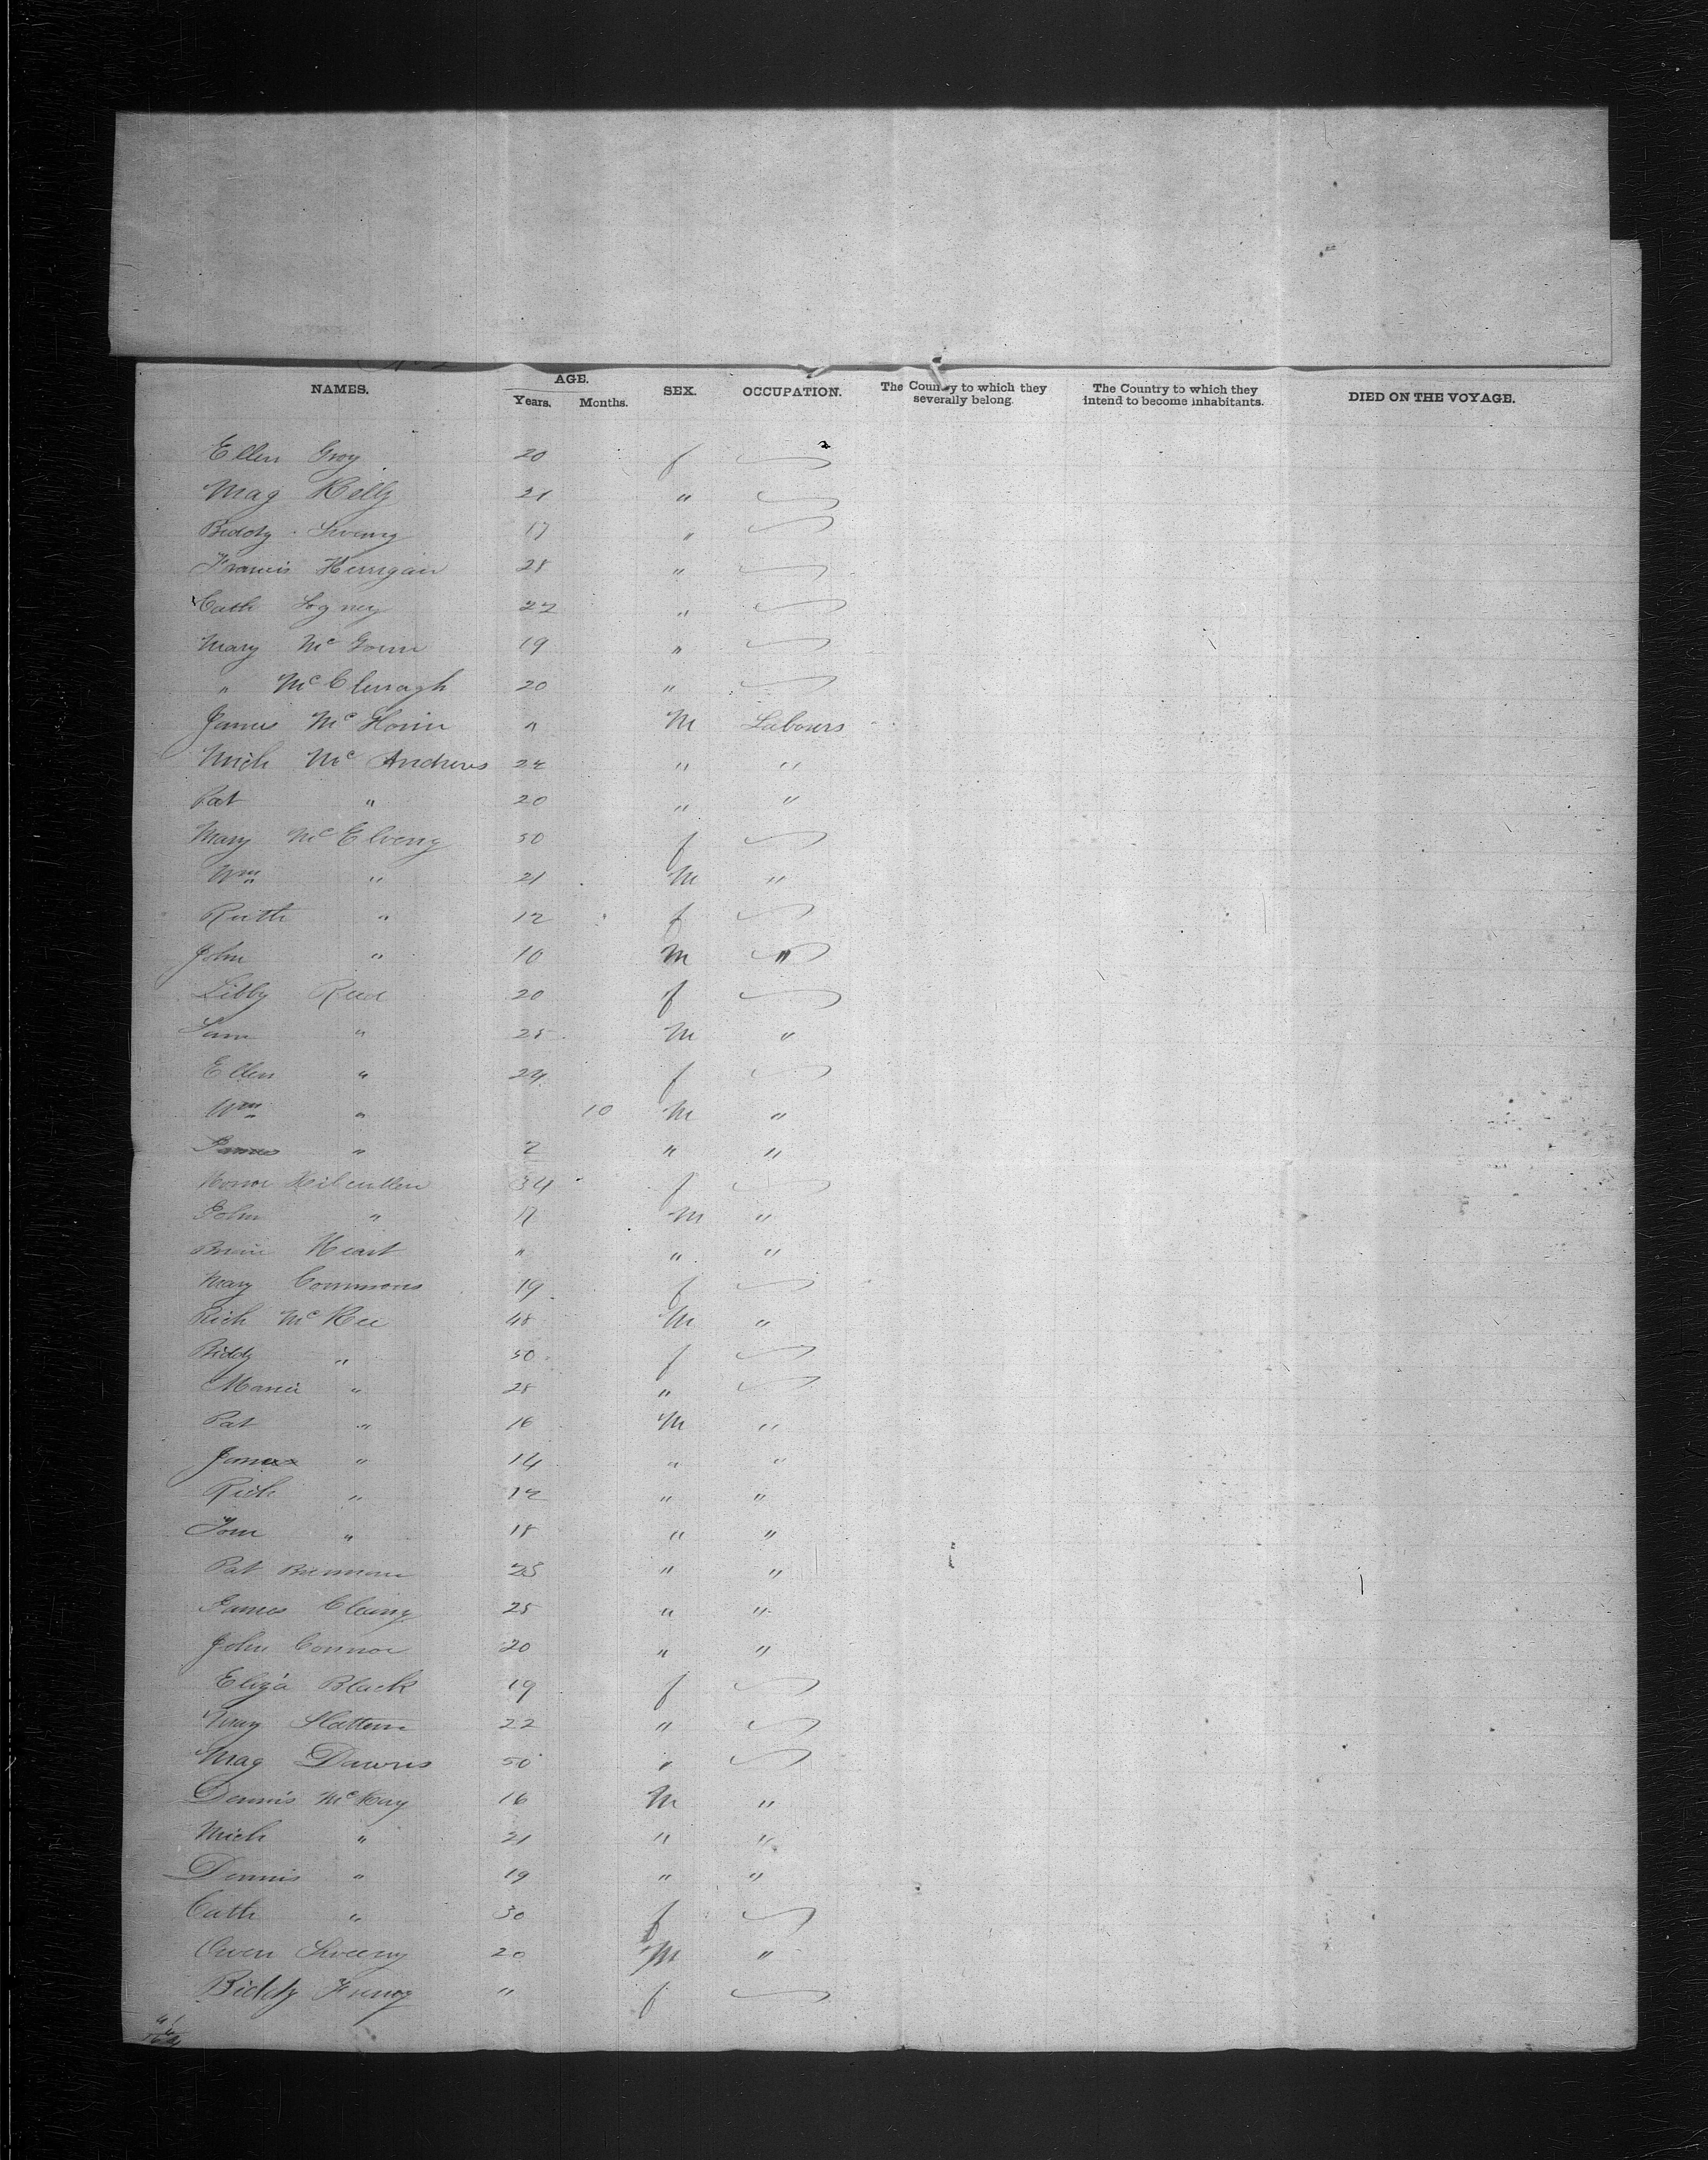 NAMES. AGE. Years. Months. SEX. OCCUPATION. The Country to which they severally belong. The Country to which they intend to become inhabitants. DIED ON THE VOYAGE.
Ellen Groy 20 f
Mag Kelly 21 "
Biddy 17 "
Francis Herrigan 28 "
Cath Logney 22 "
Mary Mc Gowin 19 "
" McClurragh 20 "
James Mc " M Labours
Mich Mc Andrews 22 " "
Pat " 20 " "
Mary McElveny 50 f
Wm " 21 M "
Ruth " 12 f
John " 10 M "
Libby Reed 20 f
Sam " 25 M "
Ellen " 24 f
Wm " 10 M "
James " 2 " "
Honor Kilcullen 34 f
John " 17 M "
Heart " " "
Mary Commons 19 f
Rich McKee 48 M "
Biddy " 50 f
Maria " 28 "
Pat " 16 M "
James " 14 " "
Rich " 12 " "
Tom " 18 " "
Pat Brennan 25 " "
James Cleary 25 " "
John Connor 20 " "
Eliza Black 19 f
Mary Slattern 22 "
Mag Dawns 50 "
Dennis McKay 16 M "
Mich " 21 " "
Dennis " 19 " "
Cath " 30 f
Owen Sweeny 20 M "
Biddy " f